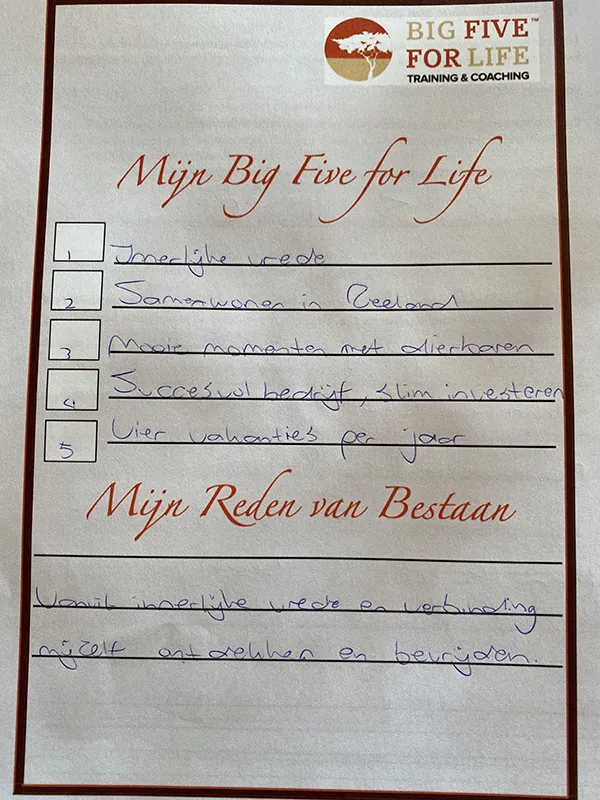 BIG FIVE™
FOR LIFE
TRAINING & COACHING
Mijn Big Five for Life
1 Innerlijke vrede
2 Samenwonen in Zeeland
3 Mooie momenten met dierbaren
4 Succesvol bedrijf, slim investeren
5 Vier vakanties per jaar
Mijn Reden van Bestaan
Vanuit innerlijke vrede en verbinding
mijzelf ontdekken en bevrijden.